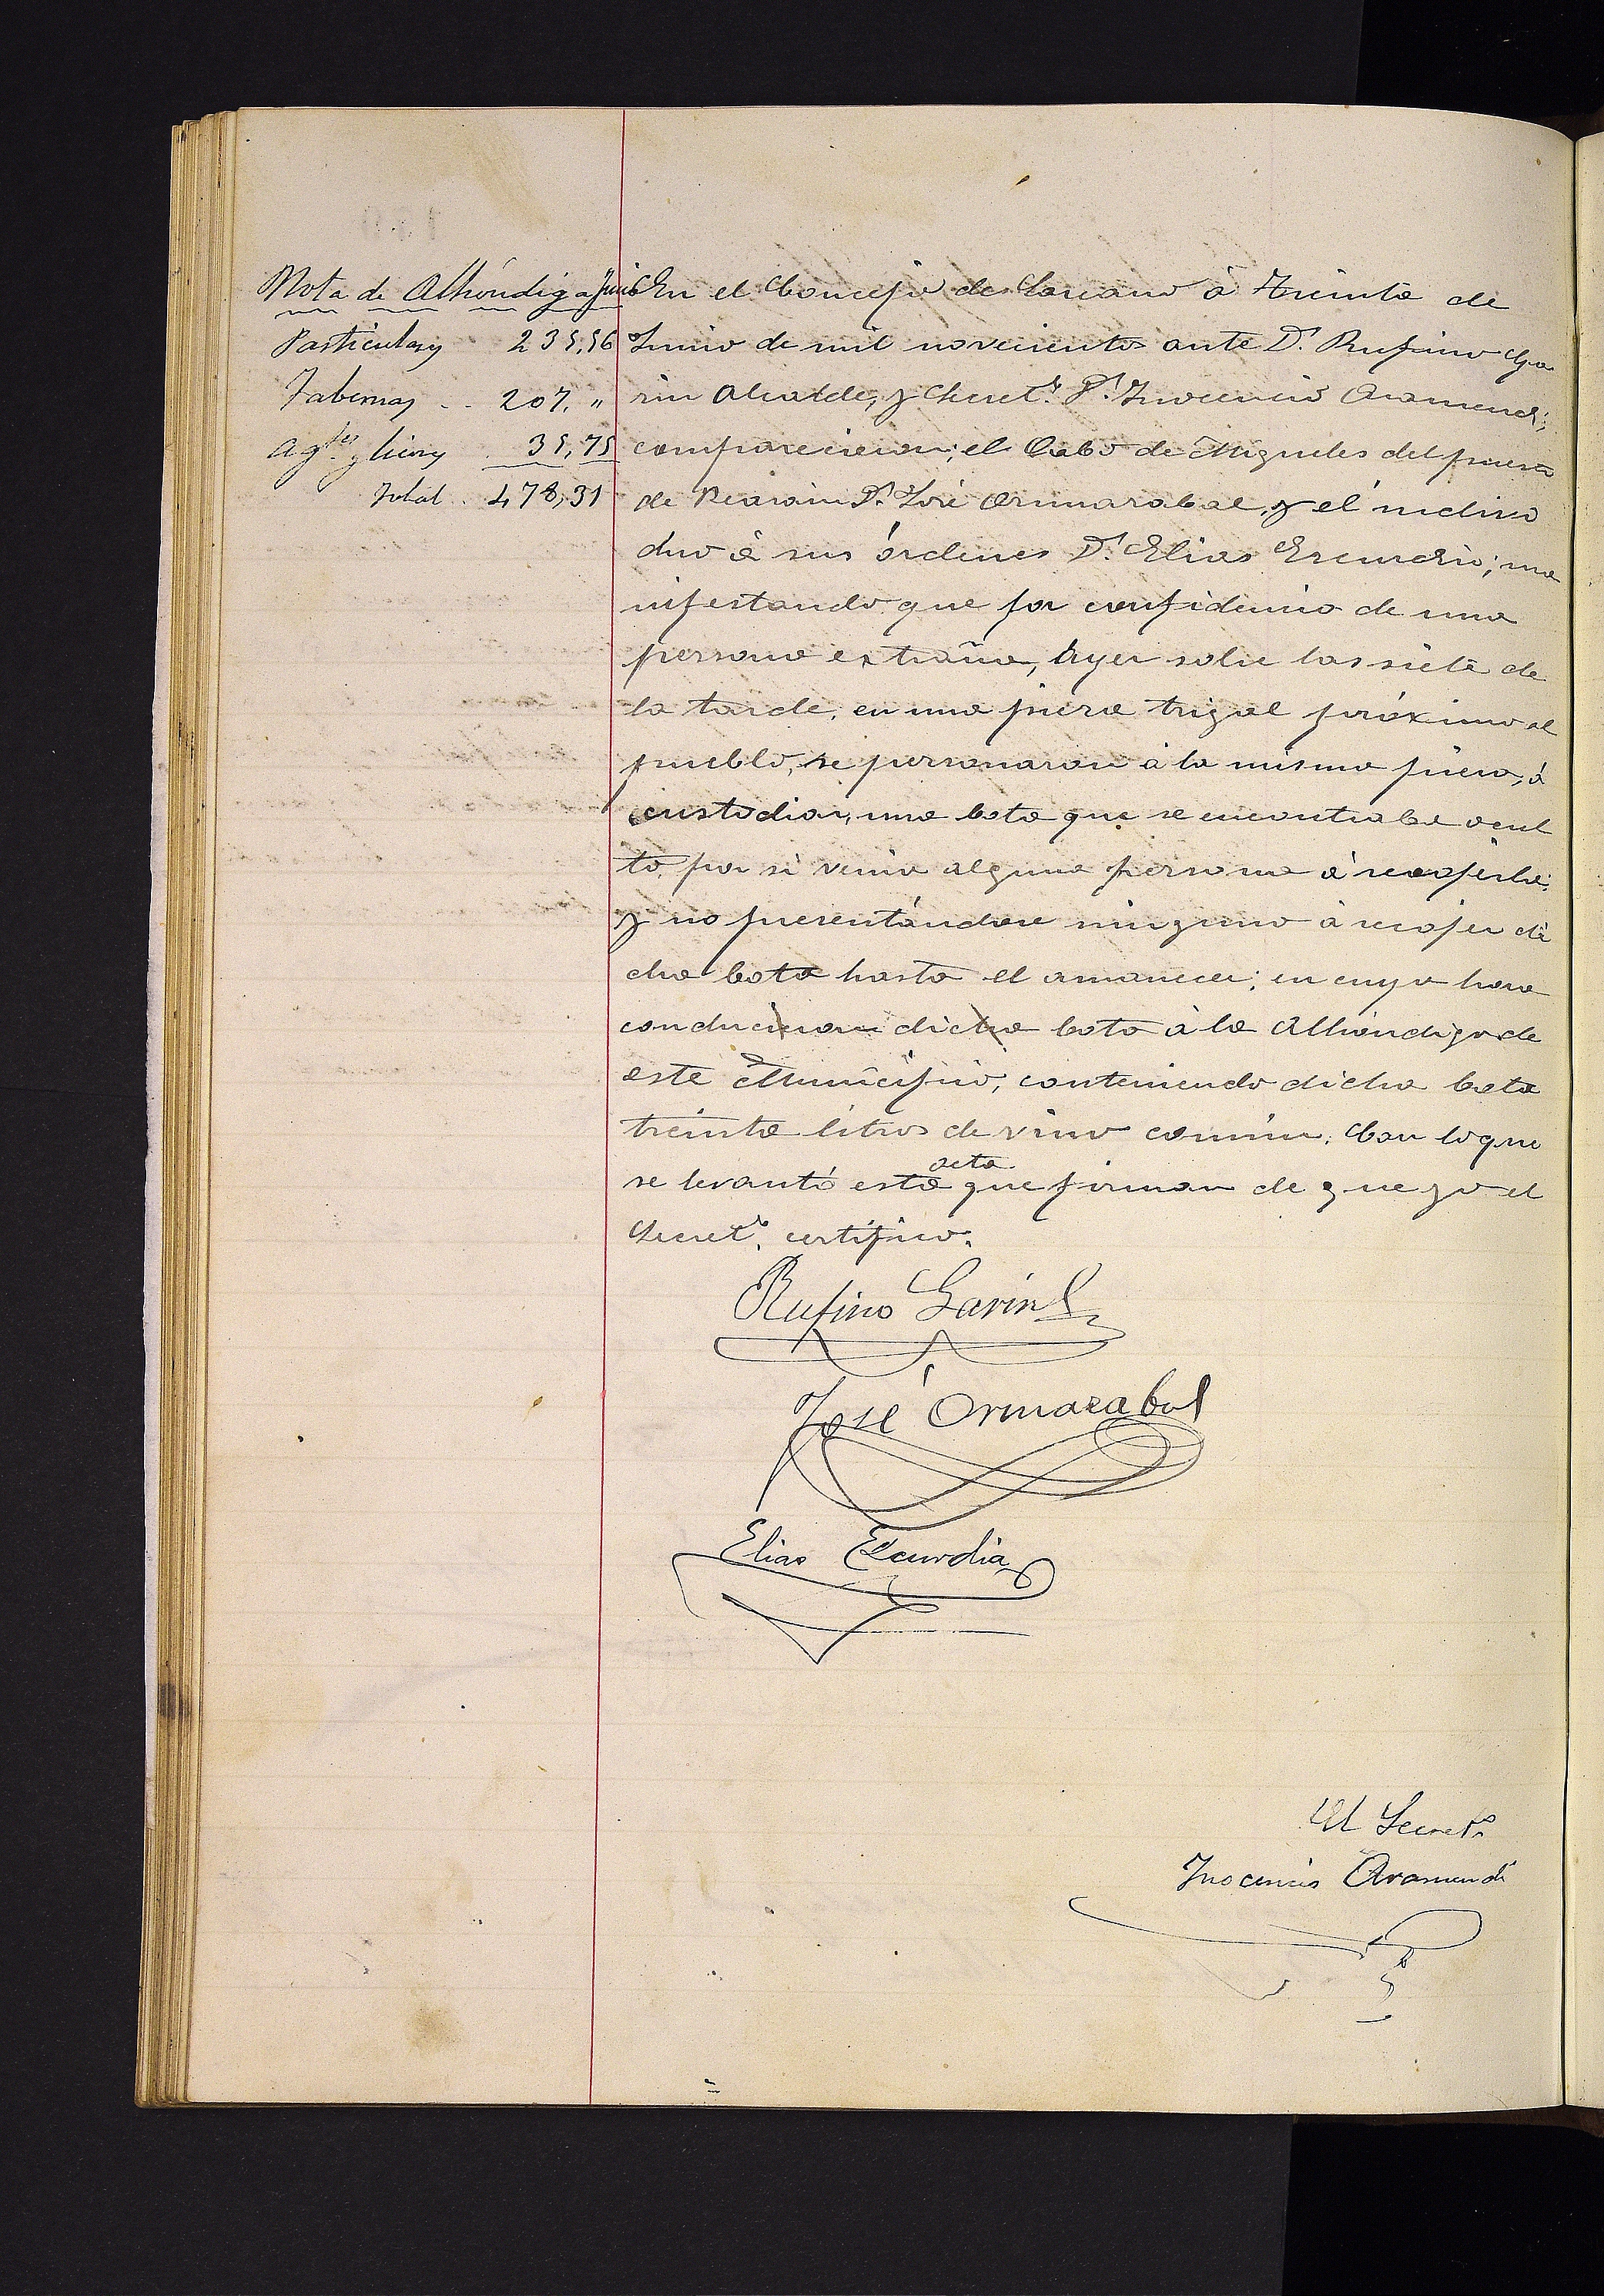 Nota de Alhóndiga Junio
Particulares 235,56
Tabernas .. 207, "
Agtes y licores . 35,75
Total . 478,31
En el Concejo de Larcano á treinta de
Junio de mil novecientos ante Dn. Rufino Ga
rin Alcalde, y Secreto. Dn. Inocencio Aramendi;
comparecieron; el Cabo de Migueletes del puesto
de Beasain Dn. José Ormazabal, y el indivi
duo á sus órdenes Dn. Elias Escurdia; ma
nifestando que por confidencia de una
persona extraña, Ayer sobre las siete de
la tarde, en una pieza trigal próximo al
pueblo, se personaron á la misma pieza, á
custodiar, una bota que se encontraba ocul
ta, por si venia alguna persona á recojerla;
y no presentándose ninguno á recojer di
cha bota hasta el amanecer; en cuya hora
condujeron dicha bota á la Alhóndiga de
este Municipio, conteniendo dicha bota
treinta litros de vino común. Con lo que
se levantó esta acta que firman de que yo el
Secreto. certifico.
Rufino Garin
José Ormazabal
Elias Escurdia
El Secreto.
Inocencio Aramendi